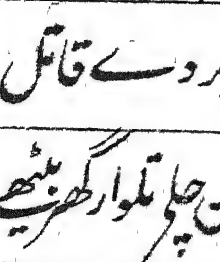 روے قاتل
چلی تلوار گھر بیٹھے